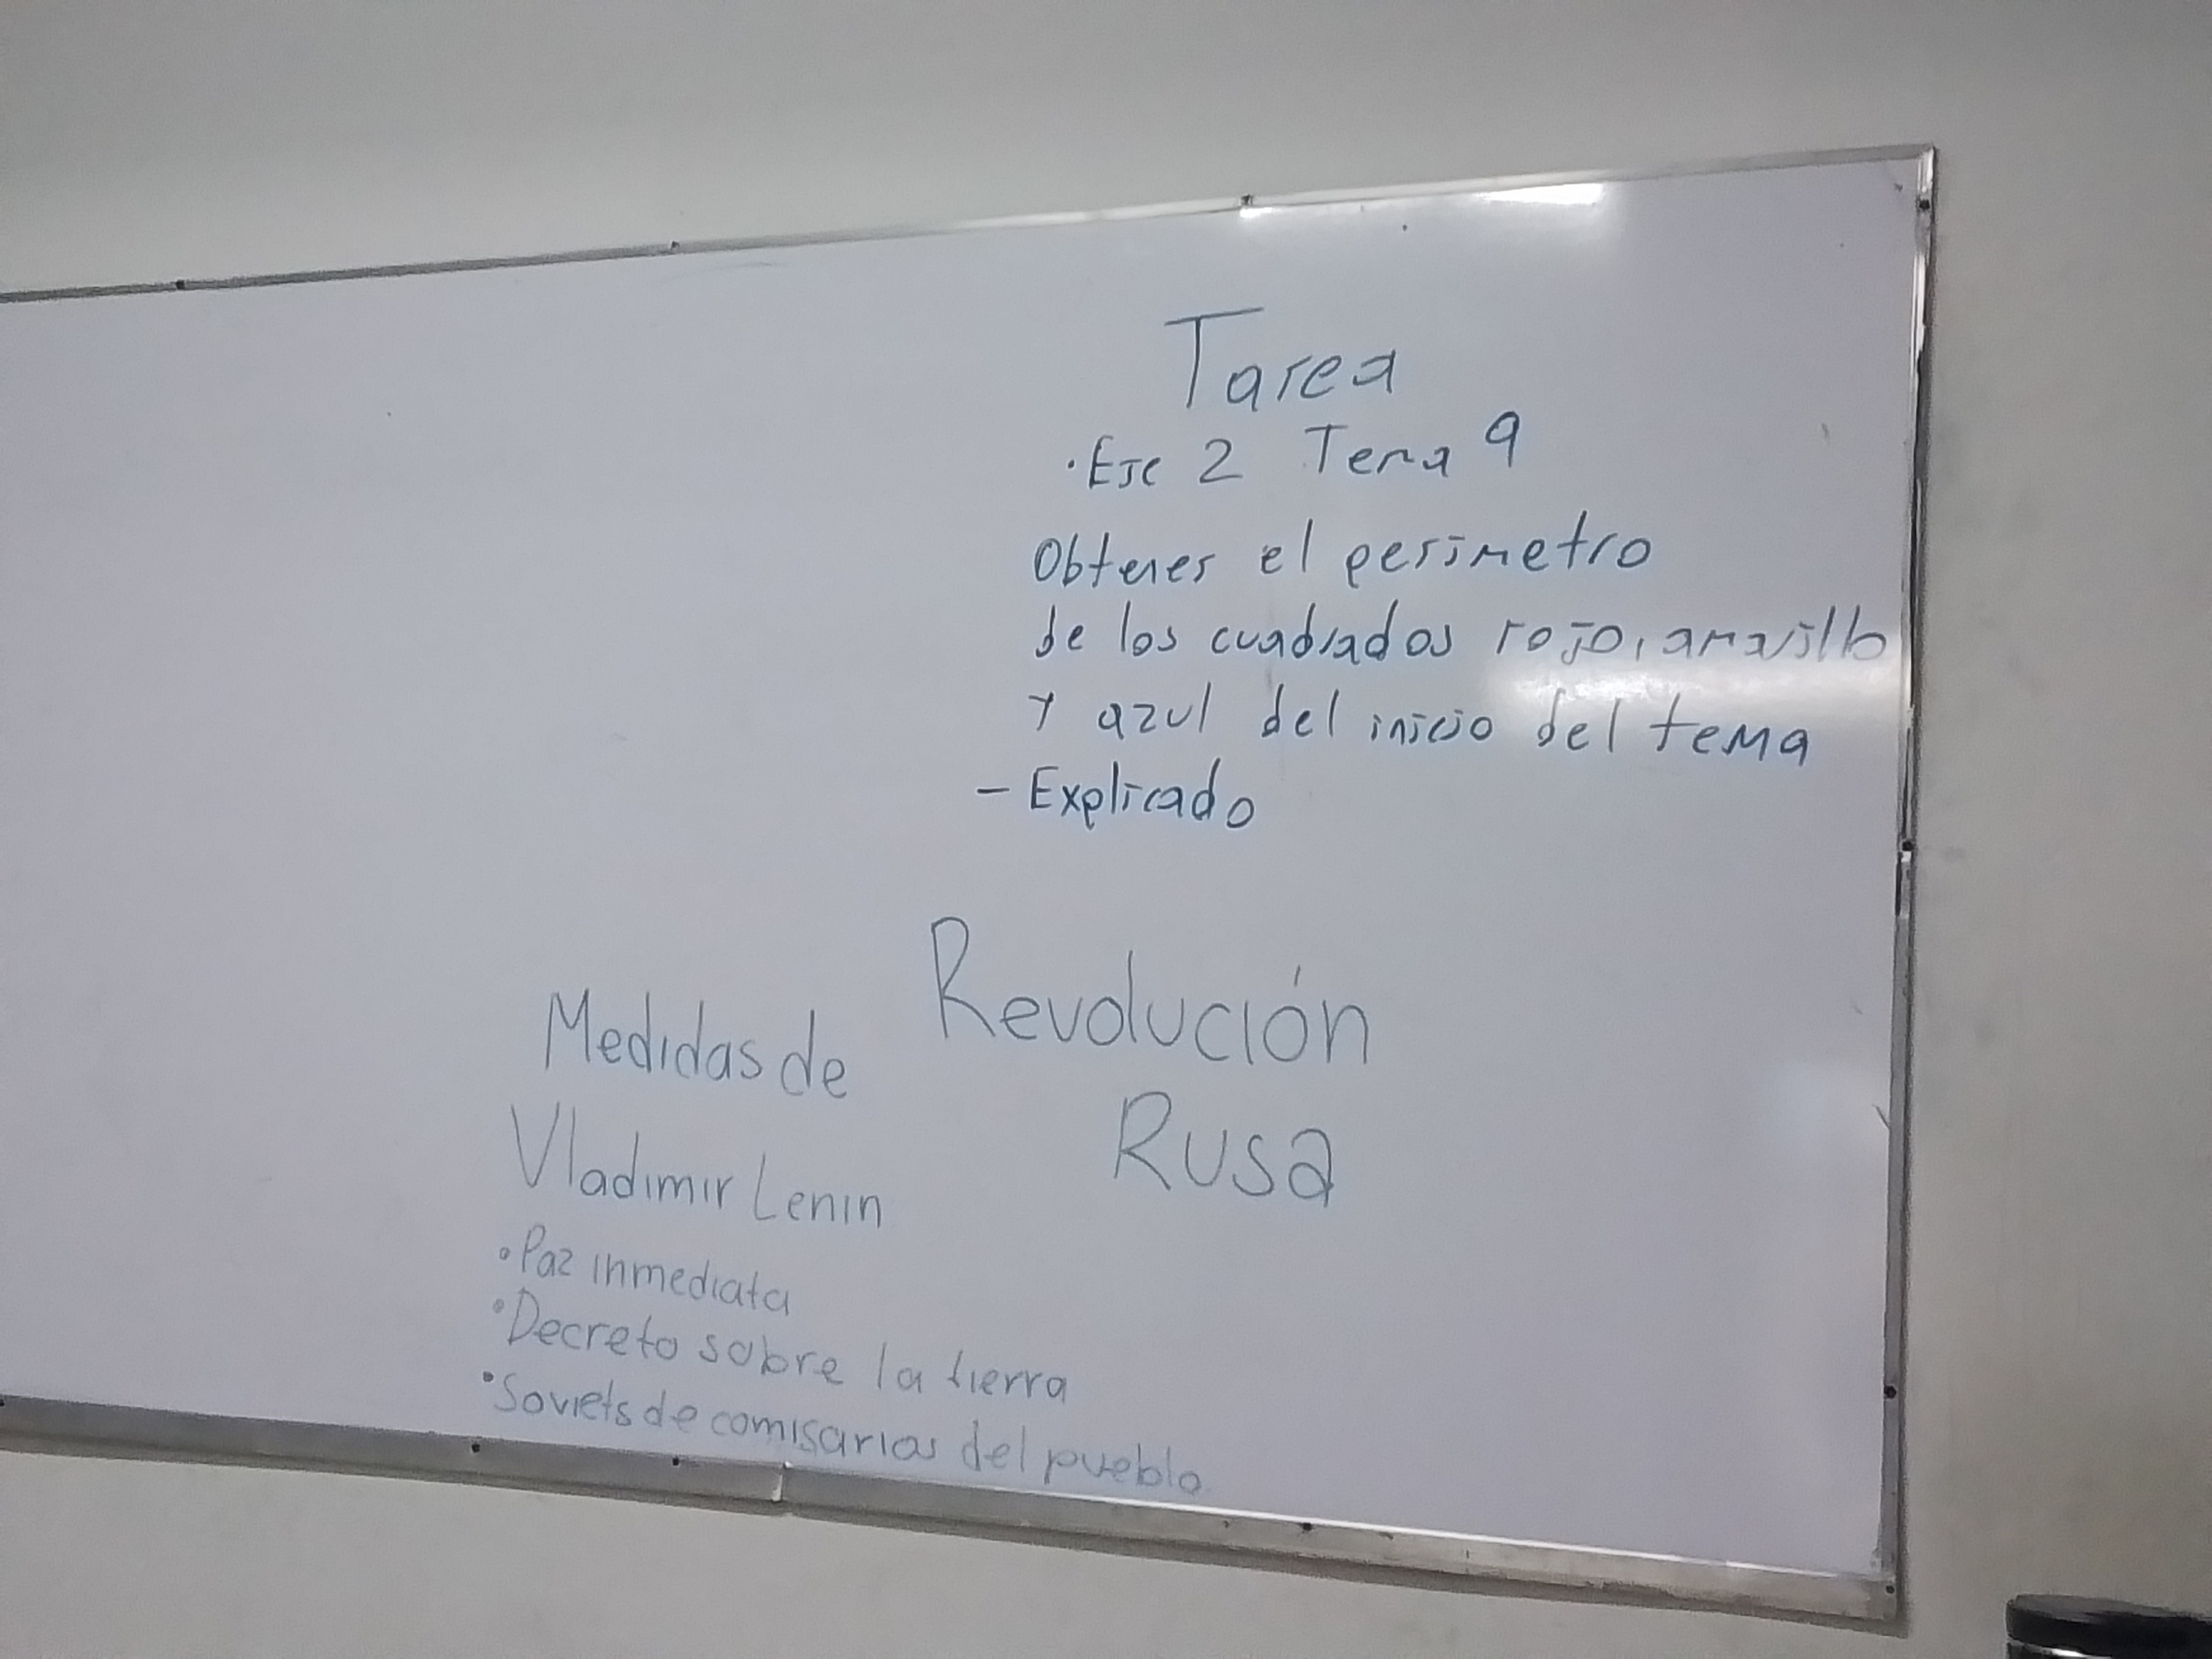 Tarea
·Eje 2 Tema 9
Obtener el perimetro
de los cuadrados rojo, amarillo
y azul del inicio del tema
- Explicado
Revolución
Rusa
Medidas de
Vladimir Lenin
•Paz inmediata
•Decreto sobre la tierra
•Soviets de comisarios del pueblo